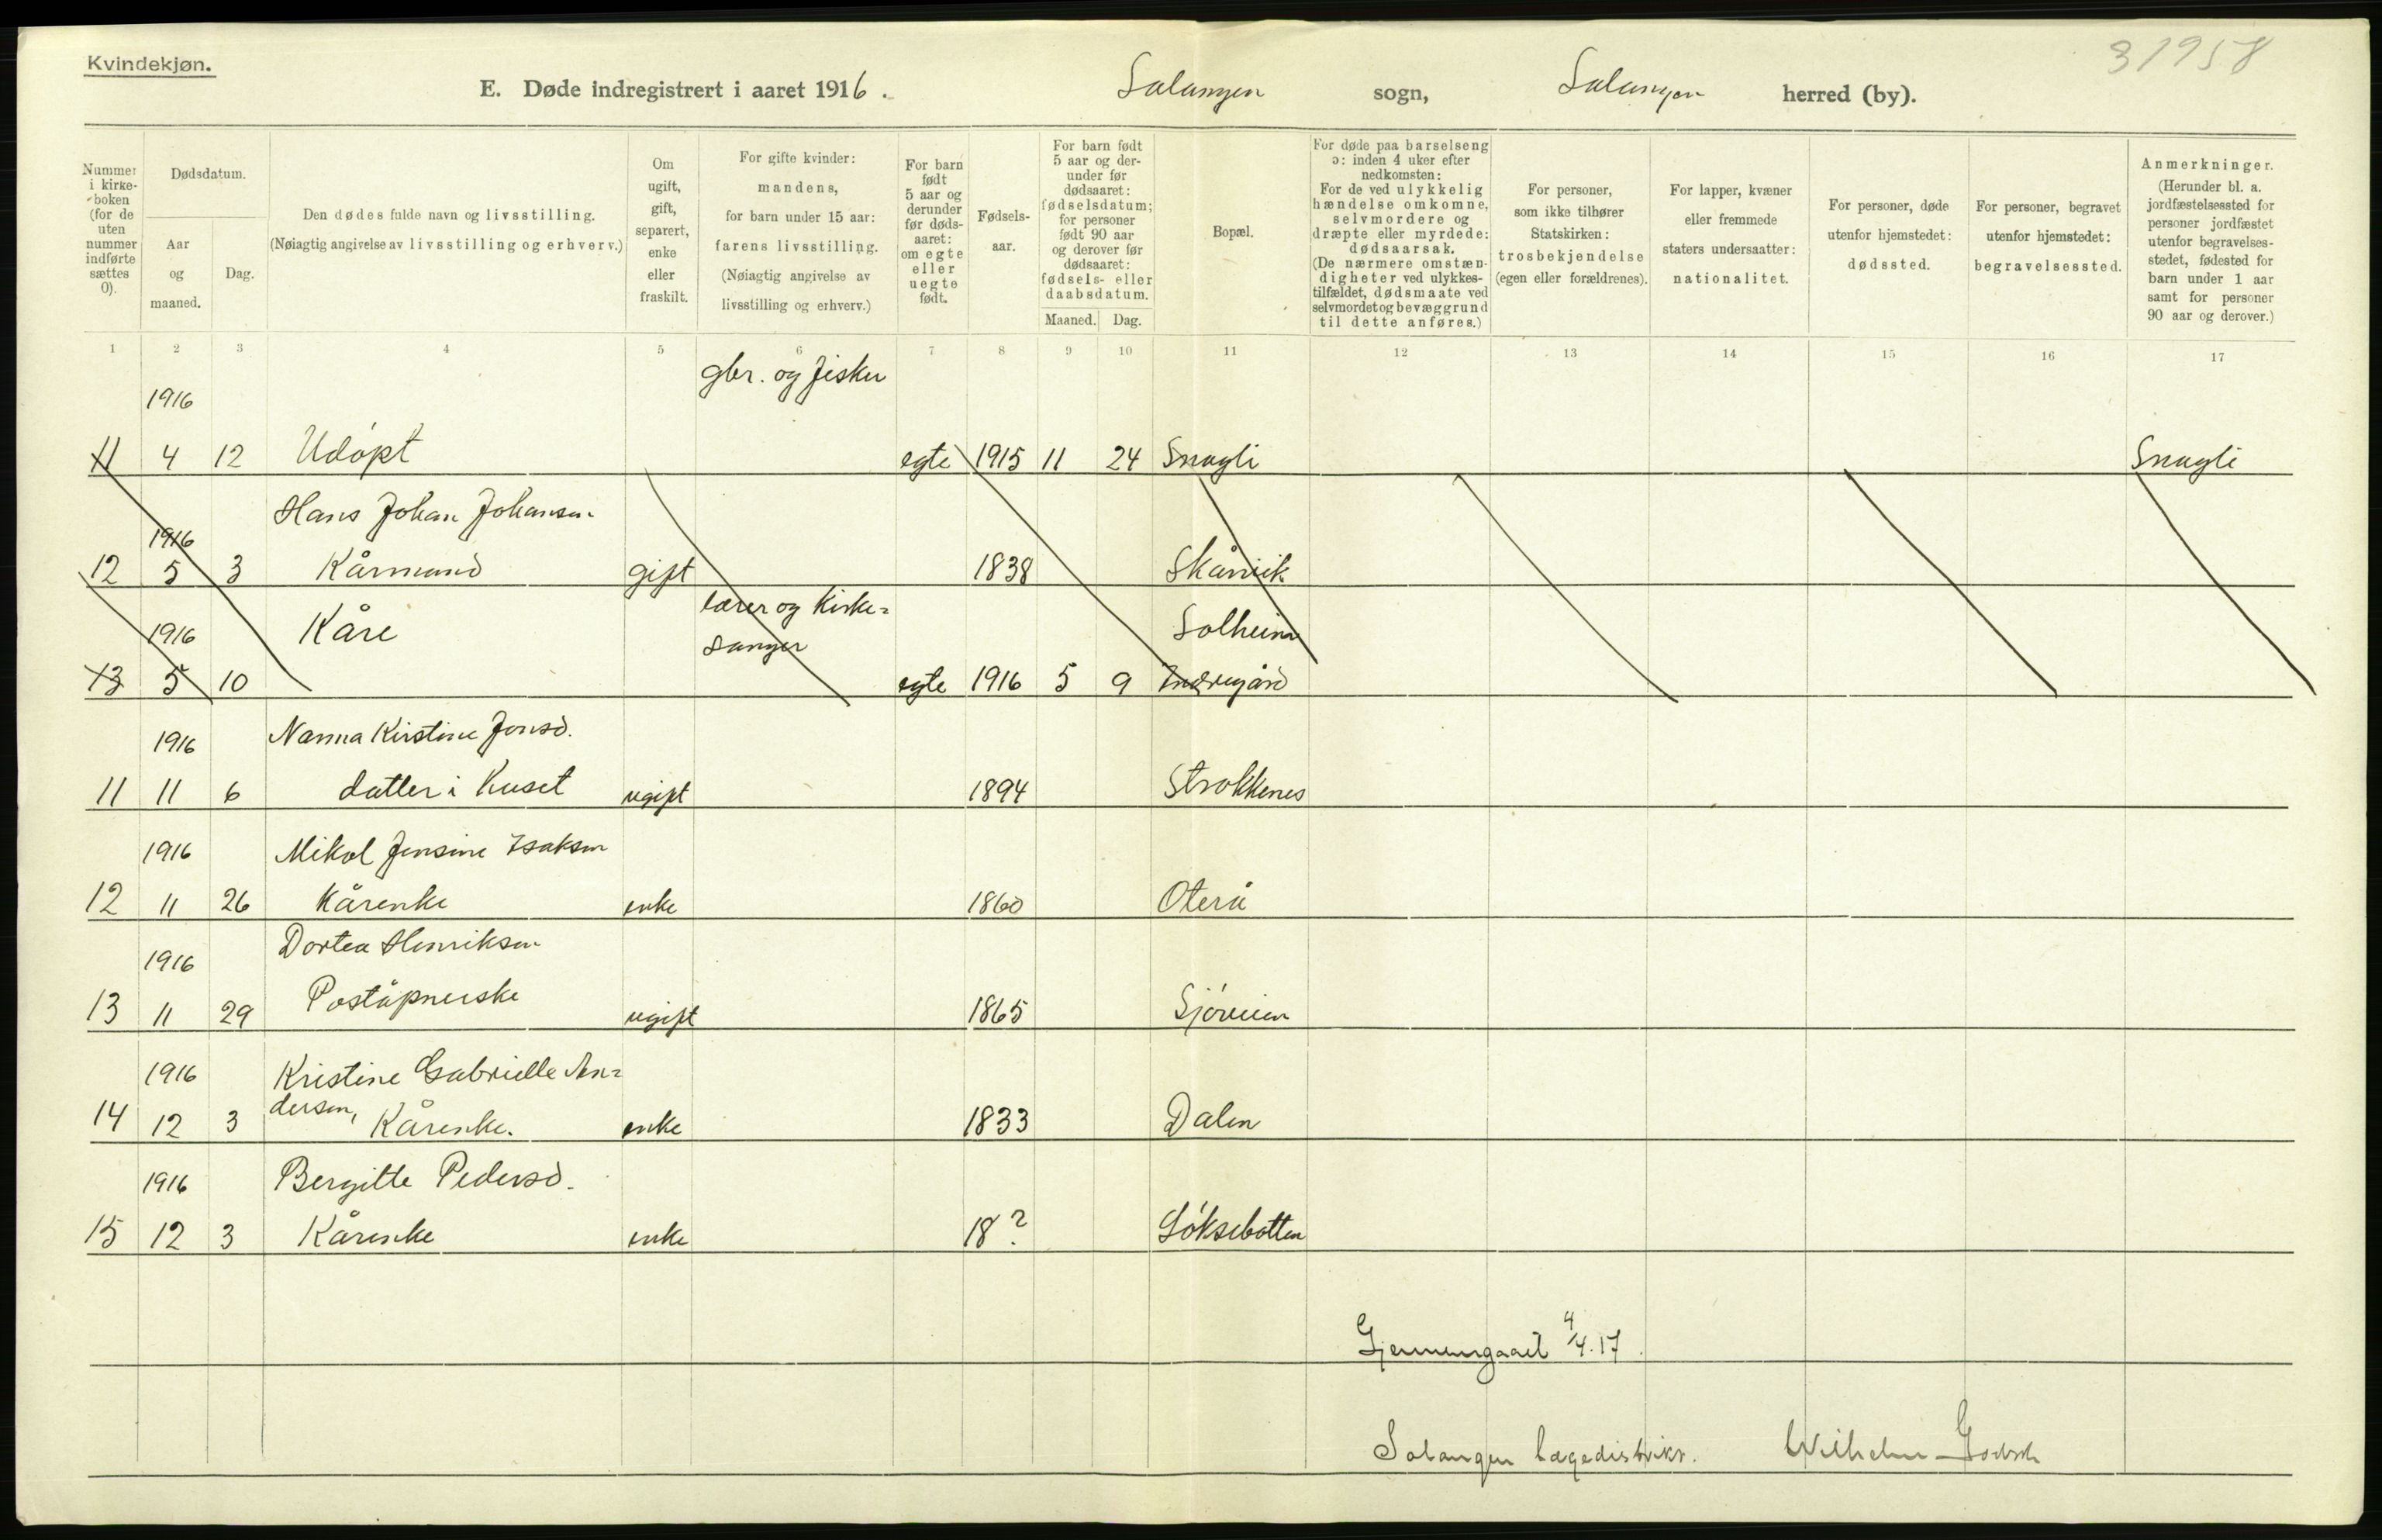 Kvindekjøn.
31958
E. Døde indregistrert i aaret 1916. Salangen sogn, Salangen herred (by).
Nummer i kirke-boken (for de uten nummer indførte sættes 0).
Dødsdatum.
Aar og maaned.
Dag.
Den dødes fulde navn og livsstilling.
(Nøiagtig angivelse av livsstilling og erhverv.)
Om ugift, gift, separert, enke eller fraskilt.
For gifte kvinder: mandens, for barn under 15 aar: farens livsstilling. (Nøiagtig angivelse av livsstilling og erhverv.)
For barn født 5 aar og derunder før døds-aaret: om egte eller uegte født.
Fødsels-aar.
For barn født 5 aar og der-under før dødsaaret: fødselsdatum; for personer født 90 aar og derover før dødsaaret: fødsels- eller daabsdatum.
Maaned. Dag.
Bopæl.
For døde paa barselseng ɔ: inden 4 uker efter nedkomsten: For de ved ulykkelig hændelse omkomne, selvmordere og dræpte eller myrdede: dødsaarsak. (De nærmere omstæn-digheter ved ulykkes-tilfældet, dødsmaate ved selvmordet og bevæggrund til dette anføres.)
For personer, som ikke tilhører Statskirken: trosbekjendelse (egen eller forældrenes).
For lapper, kvæner eller fremmede staters undersaatter: nationalitet.
For personer, døde utenfor hjemstedet: dødssted.
For personer, begravet utenfor hjemstedet: begravelsessted.
Anmerkninger. (Herunder bl. a. jordfæstelsessted for personer jordfæstet utenfor begravelses-stedet, fødested for barn under 1 aar samt for personer 90 aar og derover.)
1 2 3 4 5 6 7 8 9 10 11 12 13 14 15 16 17
gbr. og fisker
1916
11 4 12 Udøpt egte 1915 11 24 Snugli Snugli
Hans Johan Johansen
1916
12 5 3 Kårmand gift 1838 Skårvik
lærer og Kirke=
1916 Kåre sanger Solheim
13 5 10 egte 1916 5 9 Indregård
1916 Nanna Kirstine Jonsd.
11 11 6 datter i huset ugift 1894 Strokkenes
1916 Mikol Jensine Isaksen
12 11 26 Kårenke enke 1860 Oterå
1916 Dortea Henriksen
13 11 29 Poståpnerske ugift 1865 Sjøveien
1916 Kristine Gabrielle An=
14 12 3 dersen, Kårenke. enke 1833 Dalen
1916 Bergitte Pedersd.
15 12 3 Kårenke enke 18? Løksebotten
Gjennemgaaet 4/4.17.
Salangen lægedistrikt. Wilhelm